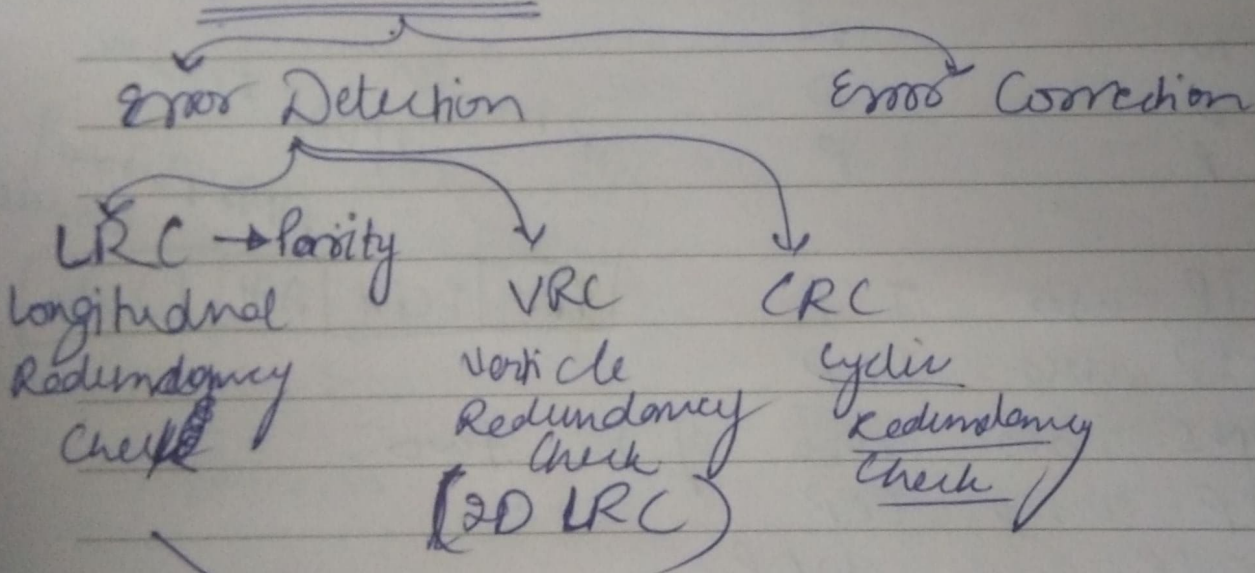 Error Detection
Error Correction
LRC → Parity
Longitudnal
Redundancy
Check
VRC
Verticle
Redundancy
Check
(2D LRC)
CRC
Cyclic
Redundancy
Check